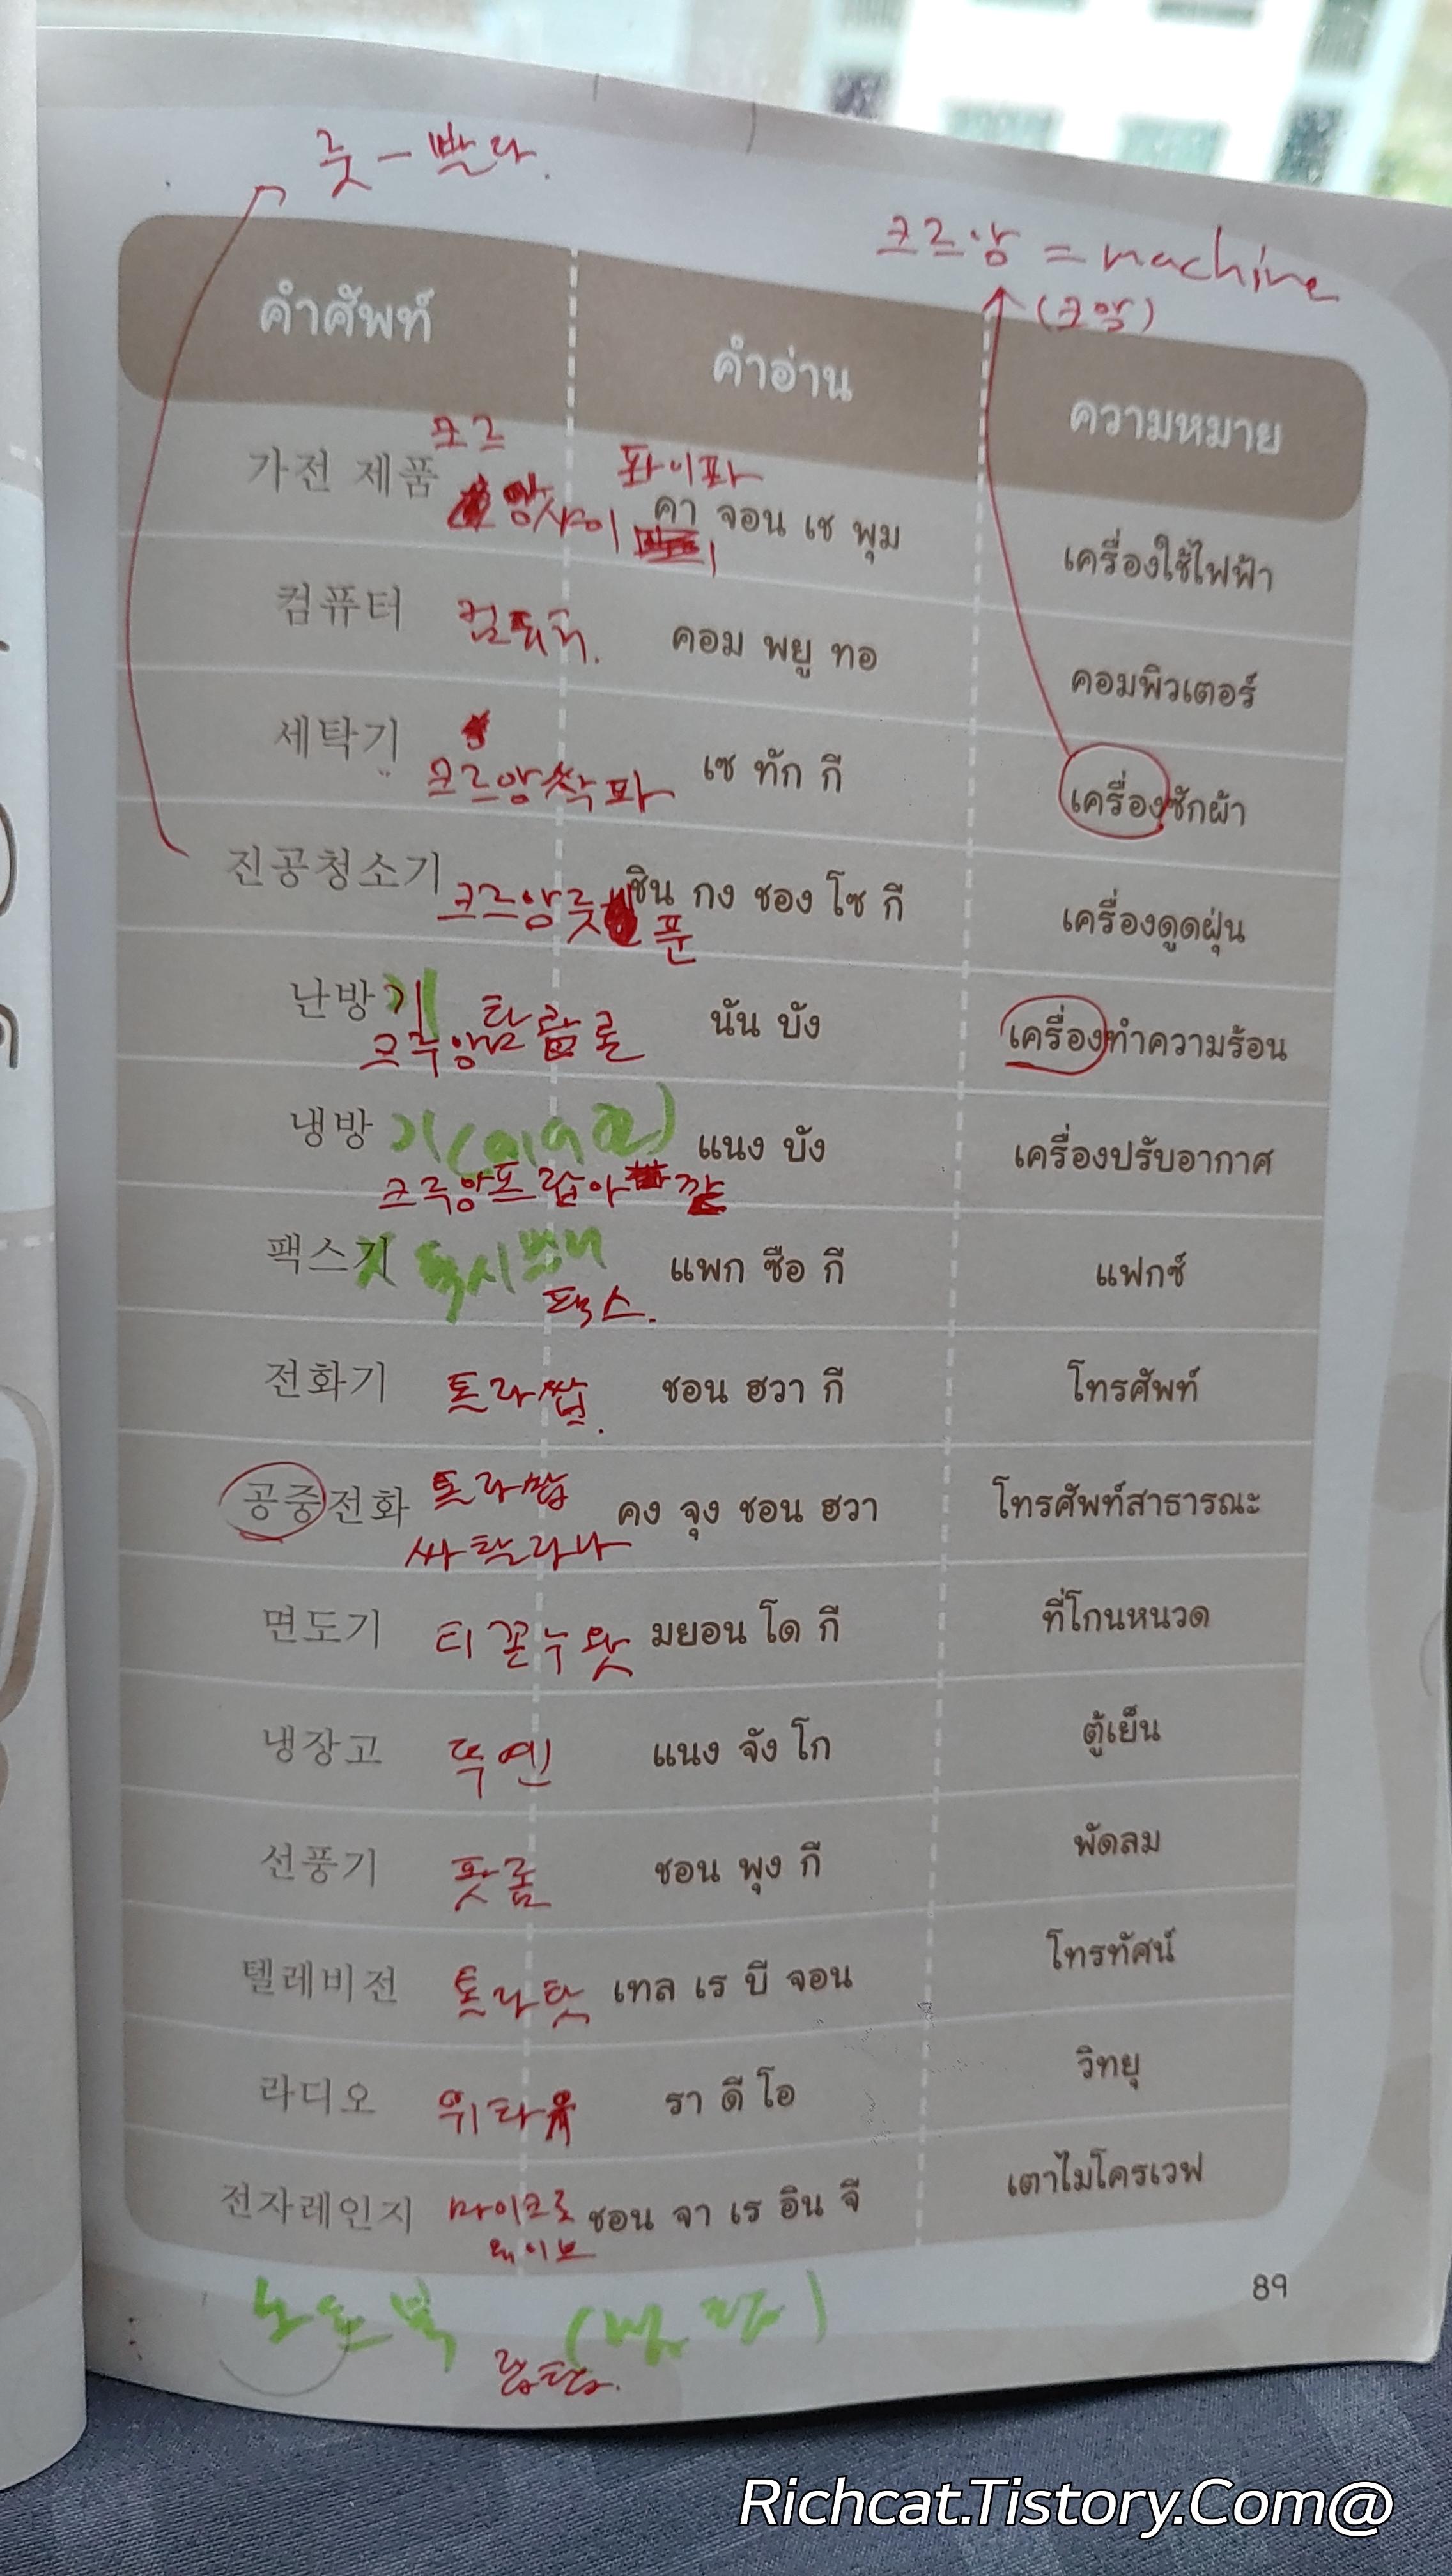 쿳 - 빨다.
크르앙 = machine
(크앙)
คำศัพท์ คำอ่าน ความหมาย
크르 퐈이퐈
가전 제품 앙차이 คา จอน เช พุม เครื่องใช้ไฟฟ้า
컴퓨터 คอม พยู ทอ คอมพิวเตอร์
세탁기 크르앙싹파 เซ ทัก กี เครื่องซักผ้า
진공청소기 크르앙 푼 ชิน กง ชอง โซ กี เครื่องดูดฝุ่น
난방기 นัน บัง เครื่องทำความร้อน
냉방기 (에어컨) แนง บัง เครื่องปรับอากาศ
팩스기 팩스. แพก ซือ กี แฟกซ์
전화기 토라쌉. ชอน ฮวา กี โทรศัพท์
공중전화 토라쌉 คง จุง ชอน ฮวา โทรศัพท์สาธารณะ
싸탈라나
면도기 티콘누왓 มยอน โด กี ที่โกนหนวด
냉장고 뚜옌 แนง จัง โก ตู้เย็น
선풍기 팟롬 ซอน พุง กี พัดลม
텔레비전 토라탓 เทล เร บี จอน โทรทัศน์
라디오 위타유 รา ดี โอ วิทยุ
전자레인지 마이크로 ชอน จา เร อิน จี เตาไมโครเวฟ
웨이브
노트북
랩탑.
89
Richcat.Tistory.Com@